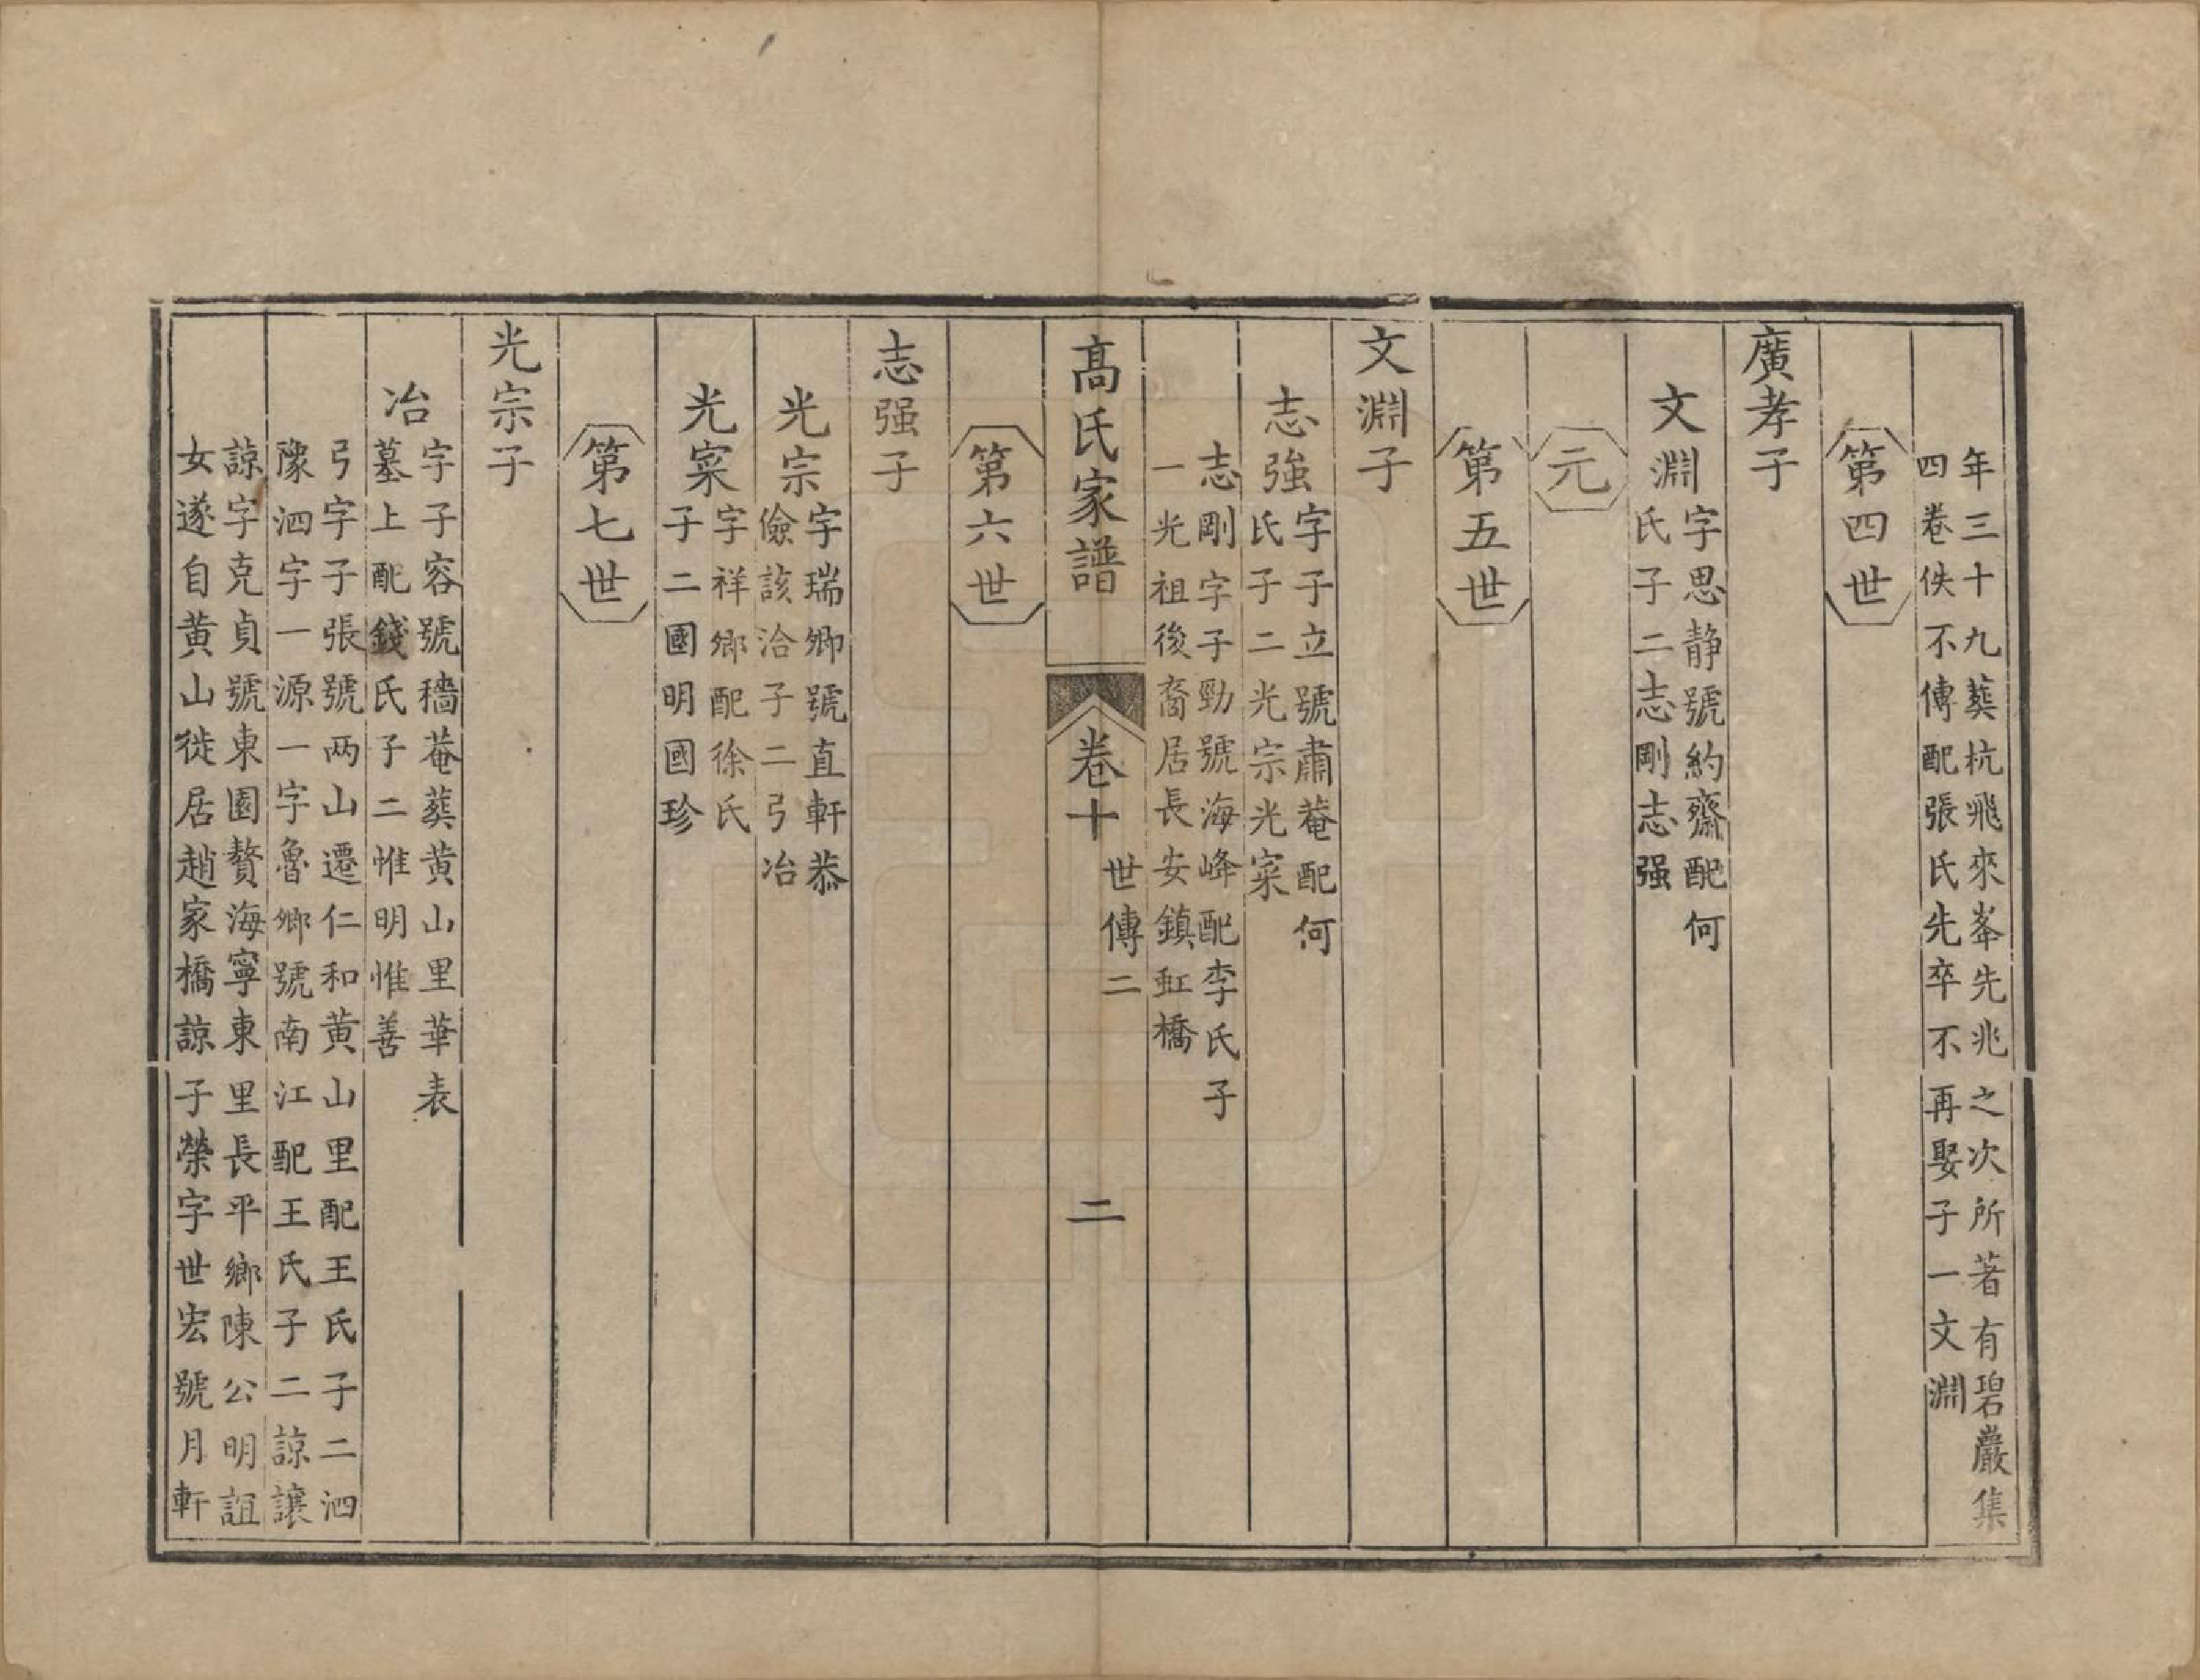 年三十九葬杭飛來峯先兆之次所著有碧巖集
四卷佚不傳配張氏先卒不再娶子一文淵
第四世
廣孝子
文淵字思静號約齋配何
氏子二志剛志强
元
第五世
文淵子
志強字子立號肅菴配何
氏子二光宗光寀
志剛字子勁號海峰配李氏子
一光祖後裔居長安鎮虹橋
高氏家譜
卷十
世傳二
二
第六世
志强子
光宗字瑞卿號直軒恭
儉該洽子二弓冶
光寀字祥鄉配徐氏
子二國明國珍
第七世
光宗子
冶字子容號穡菴葬黄山里華表
墓上配錢氏子二惟明惟善
弓字子張號两山遷仁和黄山里配王氏子二泗
豫泗字一源一字魯鄉號南江配王氏子二諒讓
諒字克貞號東園贅海寧東里長平鄉陳公明誼
女遂自黄山徙居趙家橋諒子榮字世宏號月軒